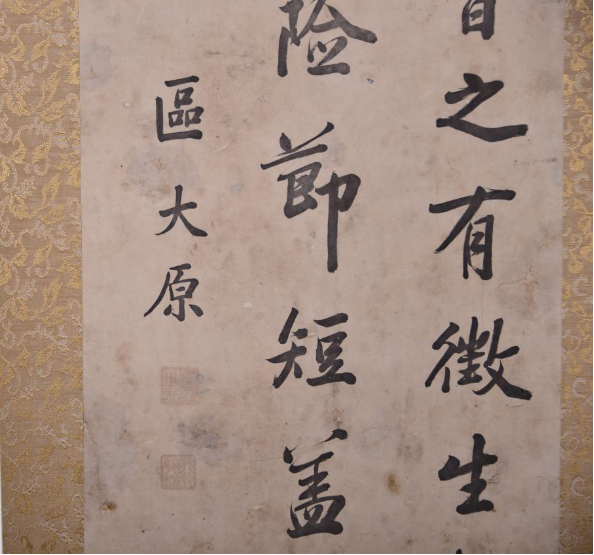 之有徵生
險節短盖
區大原